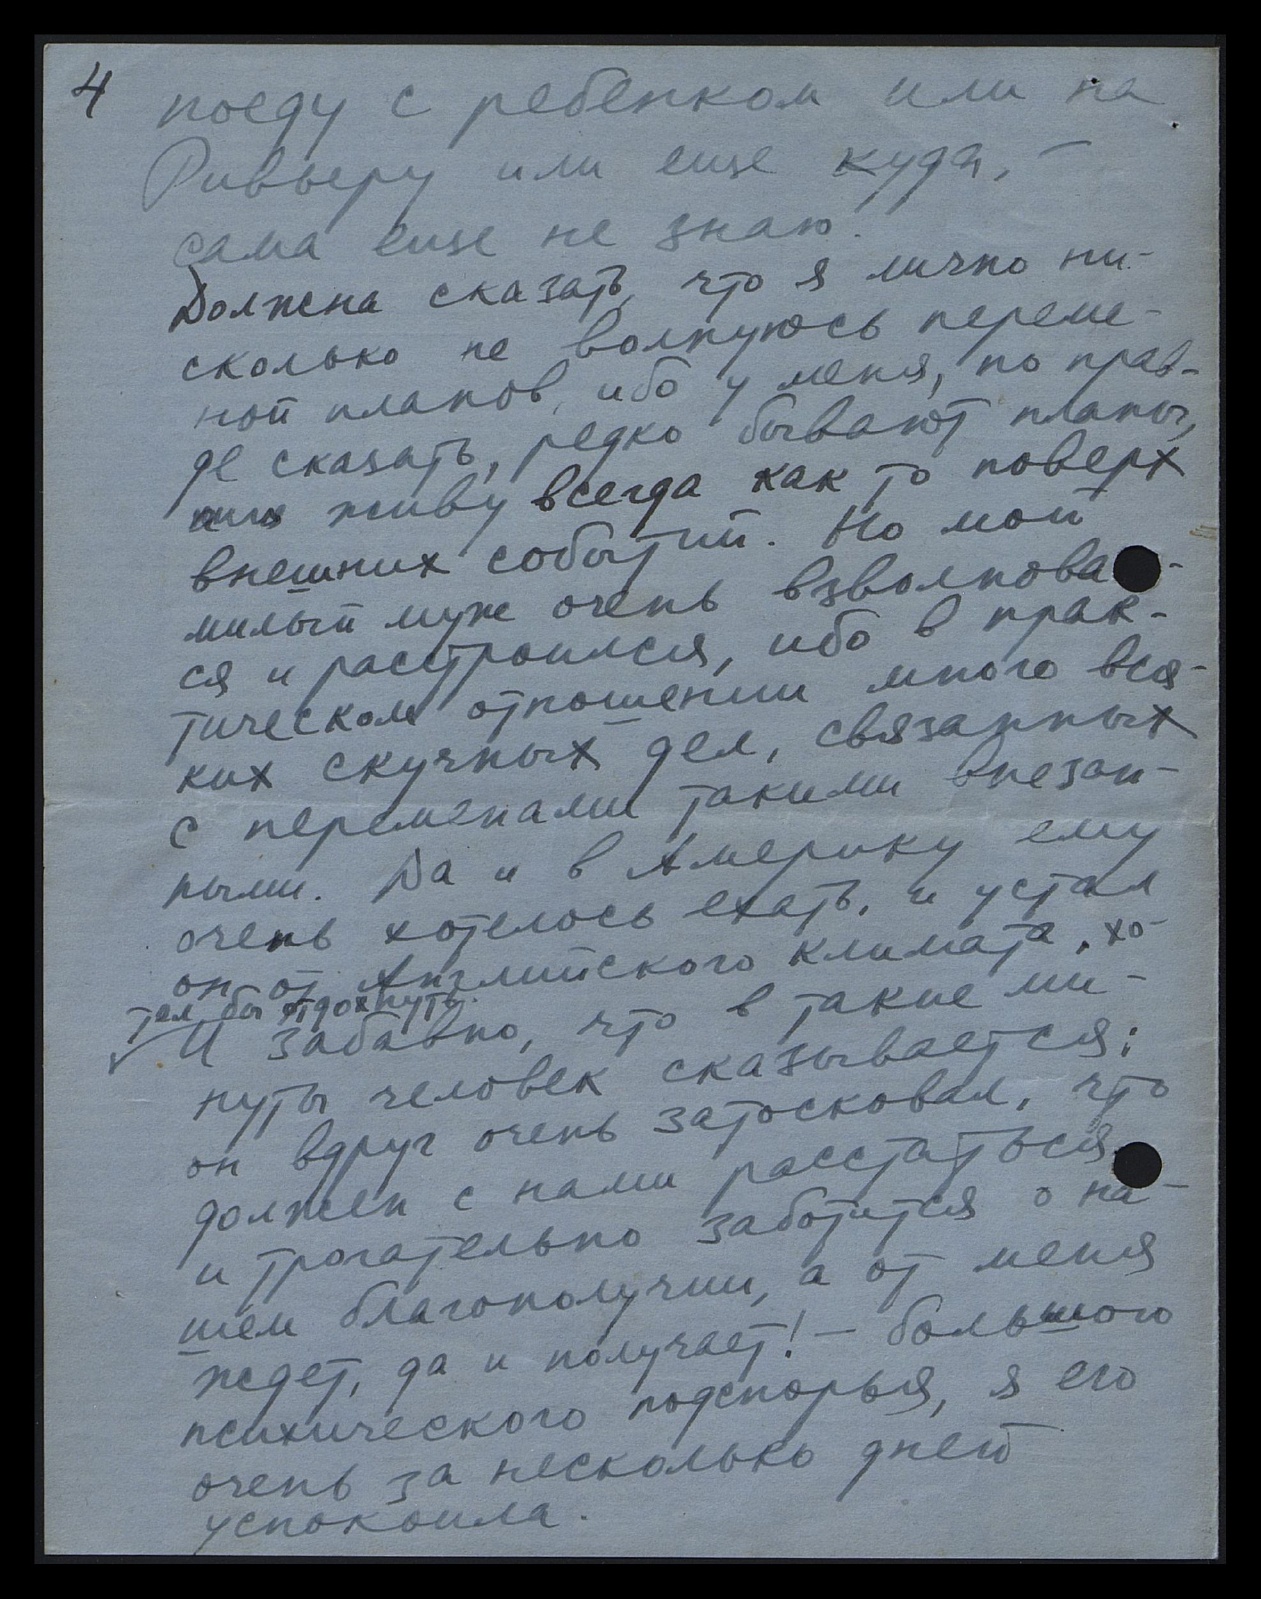 4
поеду с ребенком или на
Ривьеру или еще куда, —
сама еще не знаю.
Должна сказать, что я лично ни-
сколько не волнуюсь переме-
ной планов, ибо у меня, по прав-
де сказать, редко бывают планы,
живу всегда как то поверх
внешних событий. Но мой
милый муж очень взволнова -
ся и расстроился, ибо в прак-
тическом отношении много вся-
ких скучных дел, связанных
с переменами такими внезап-
ными. Да и в Америку ему
очень хотелось ехать, и устал
он от Английского климата, хо-
тел бы отдохнуть.
И забавно, что в такие ми-
нуты человек сказывается:
он вдруг очень затосковал, что
должен с нами расстаться,
и трогательно заботится о на-
шем благополучии, а от меня
ждет, да и получает! — большого
психического подспорья, я его
очень за несколько дней
успокоила.